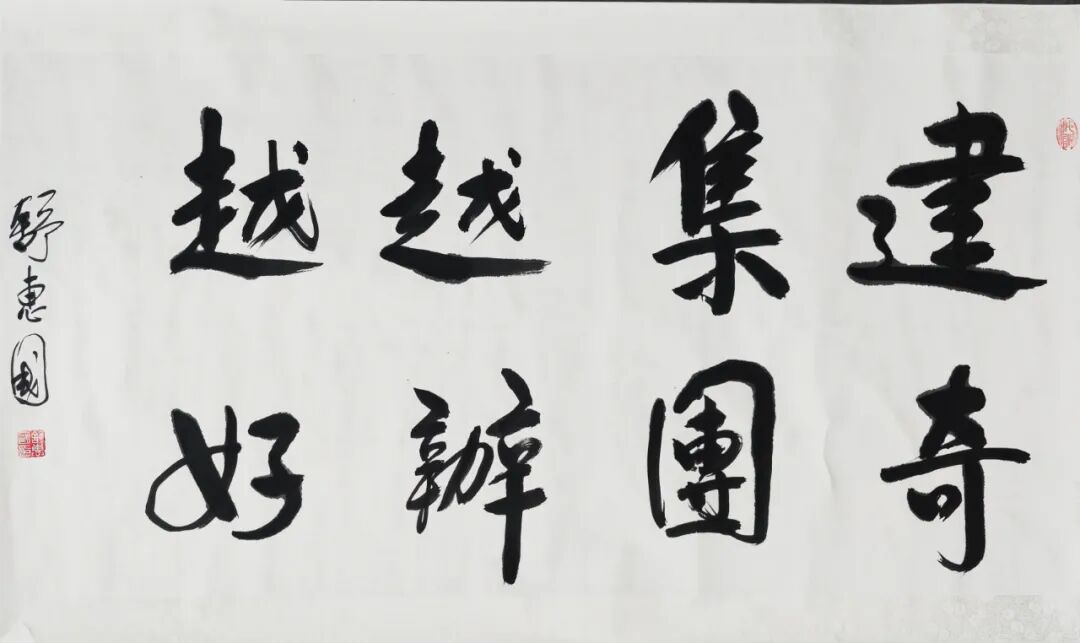 建奇
集團
越辦
越好
舒惠國